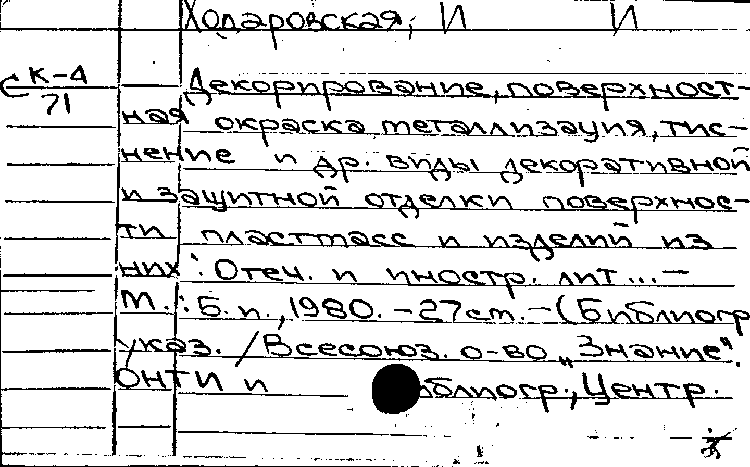 Ходаровская, И И
К-4
71
Декорирование, поверхност-
ная окраска, металлизация, тис-
нение и др. виды декоративной
и защитной отделки поверхнос-
ти пластмасс и изделий из
них: Отеч. и иностр. лит... -
М.: Б. и., 1980. - 27 ст. - (Библиогр
указ. / Всесоюз. о-во „Знание".
ОНТИ и блиогр., Центр.